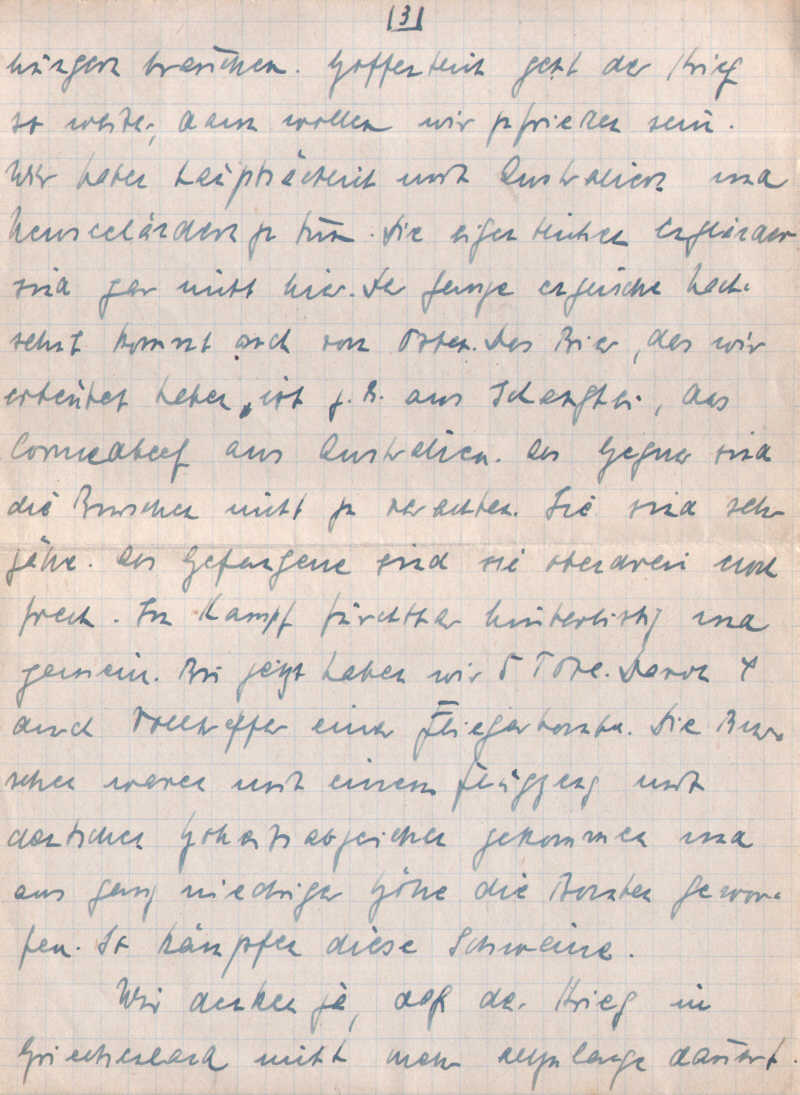 (3)
hungern brauchen. Hoffentlich geht der Krieg
so weiter, dann wollen wir zufrieden sein.
Wir haben hauptsächlich mit Australiern und
Neuseeländern zu tun. Die eigentlichen Engländer
sind gar nicht hier. Der ganze englische Nach-
schub kommt auch von Osten. Das Bier, das wir
erbeutet haben, ist z.B. aus Schanghai, das
Cornedbeef aus Australien. Als Gegner sind
die Burschen nicht zu verachten. Sie sind sehr
zähe. Als Gefangene sind sie obendrein noch
frech. Im Kampf furchtbar hinterlistig und
gemein. Bis jetzt haben wir 5 Tote. Davon 4
durch Volltreffer einer Fliegerbombe. Die Bur-
schen waren mit einem Flugzeug mit
deutschen Hoheitsabzeichen gekommen und
aus ganz niedriger Höhe die Bomben gewor-
fen. So kämpfen diese Schweine.
Wir denken ja, daß der Krieg in
Griechenland nicht mehr allzulange dauert.